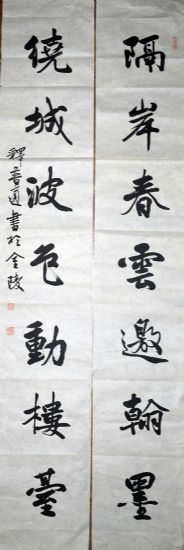 隔岸春雲邀翰墨
繞城波色動樓臺
釋音通書於金陵